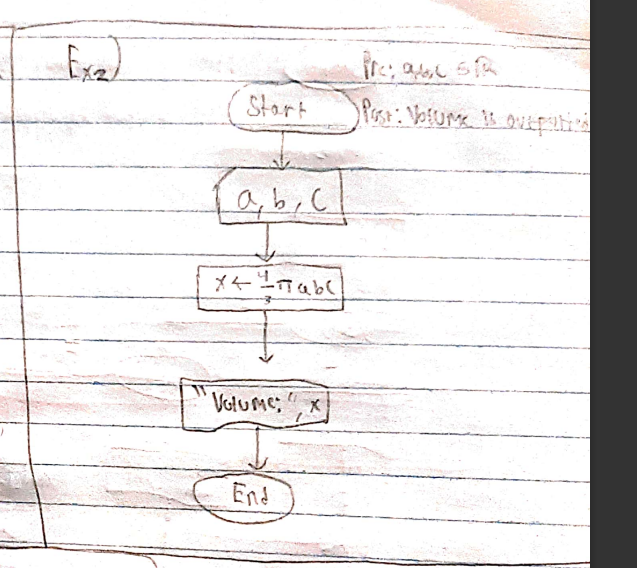 Ex2)
Pre: a,b,c ∈ ℝ
Start
Post: Volume is outputted
a, b, c
x ← 4/3 π abc
"Volume: ", x
End